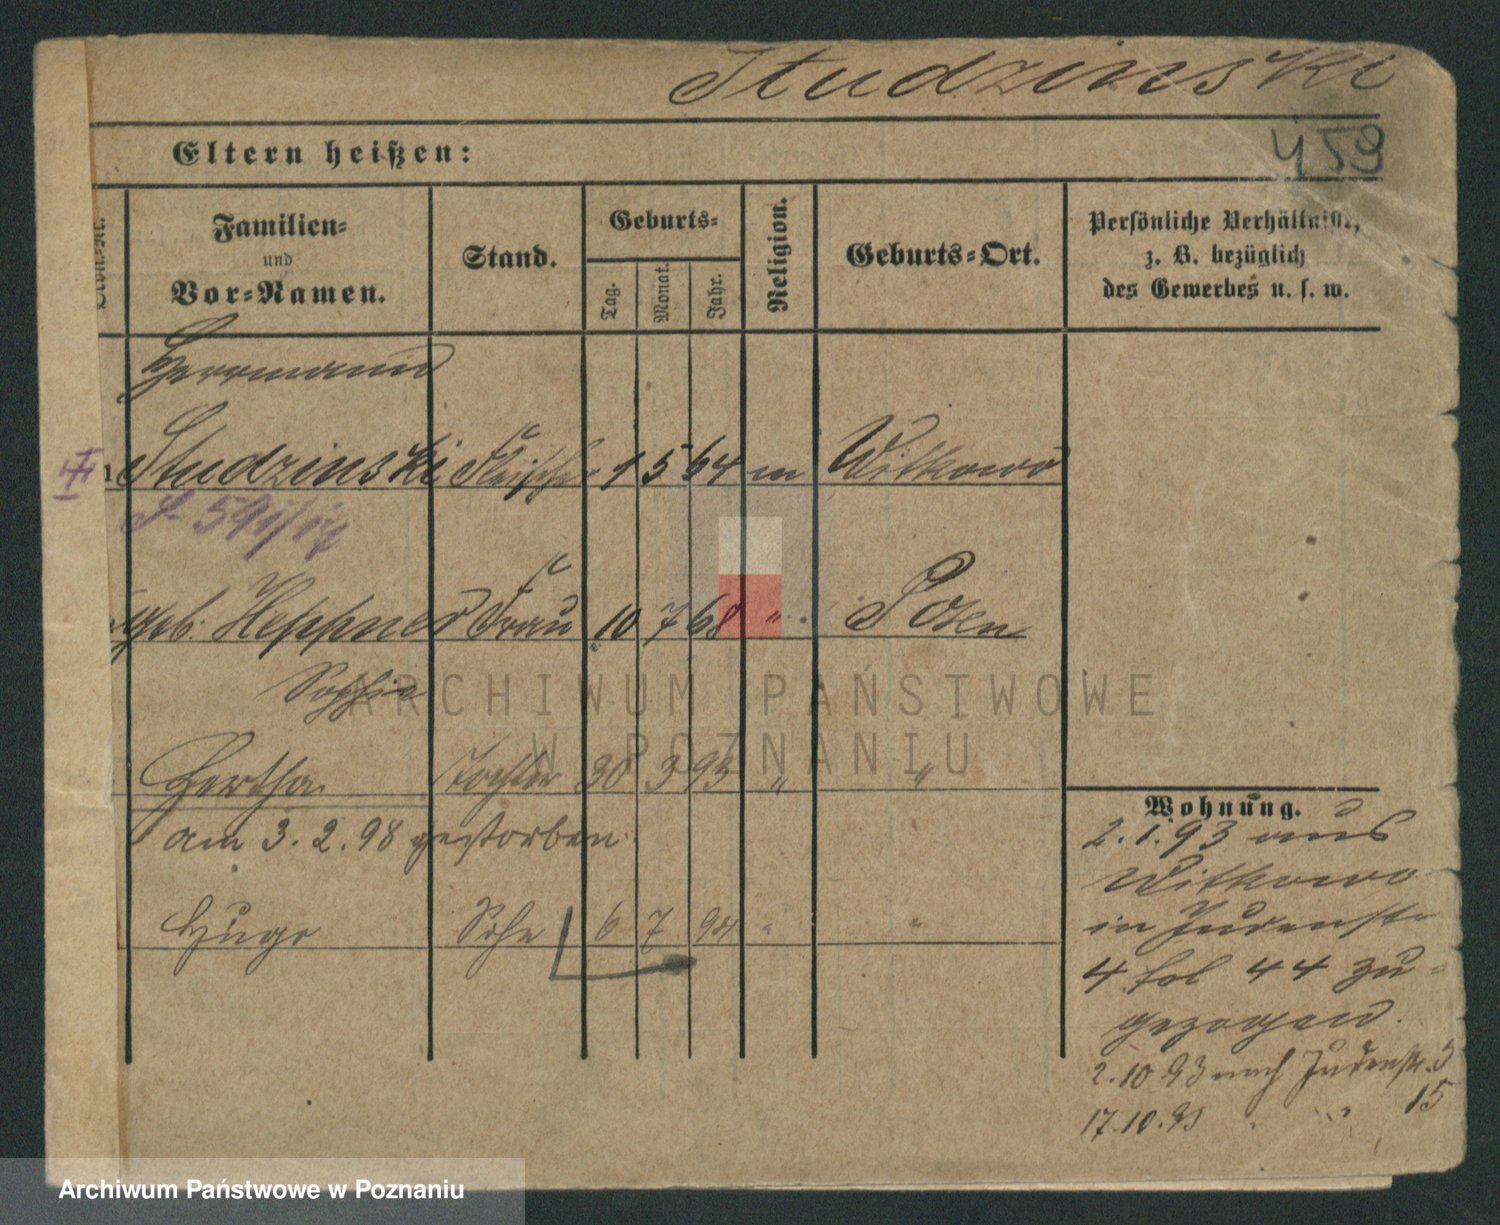 Studzinski
459
Eltern heißen:
Familien=
und
Vor=Namen.
Stand.
Geburts=
Tag.
Monat.
Jahr.
Religion.
Geburts=Ort.
Persönliche Verhältnisse,
z. B. bezüglich
des Gewerbes u. s. w.
Herrmann
1 Studzinski Fleischer 1 5 64 m Witkowo
geb. Heppner Frau 10 7 68 " Posen
Sophie
Hertha Tochter 30 3 93 " "
am 3. 2. 98 gestorben.
Hugo Sohn 6 7 94 " "
Wohnung.
2. 1. 93 aus
Witkowo
in Judenstr
4 fol 44 zu=
gezogen.
2. 10. 93 nach Judenstr. 3
17. 10. 95 " " 15
ARCHIWUM PAŃSTWOWE
W POZNANIU
Archiwum Państwowe w Poznaniu